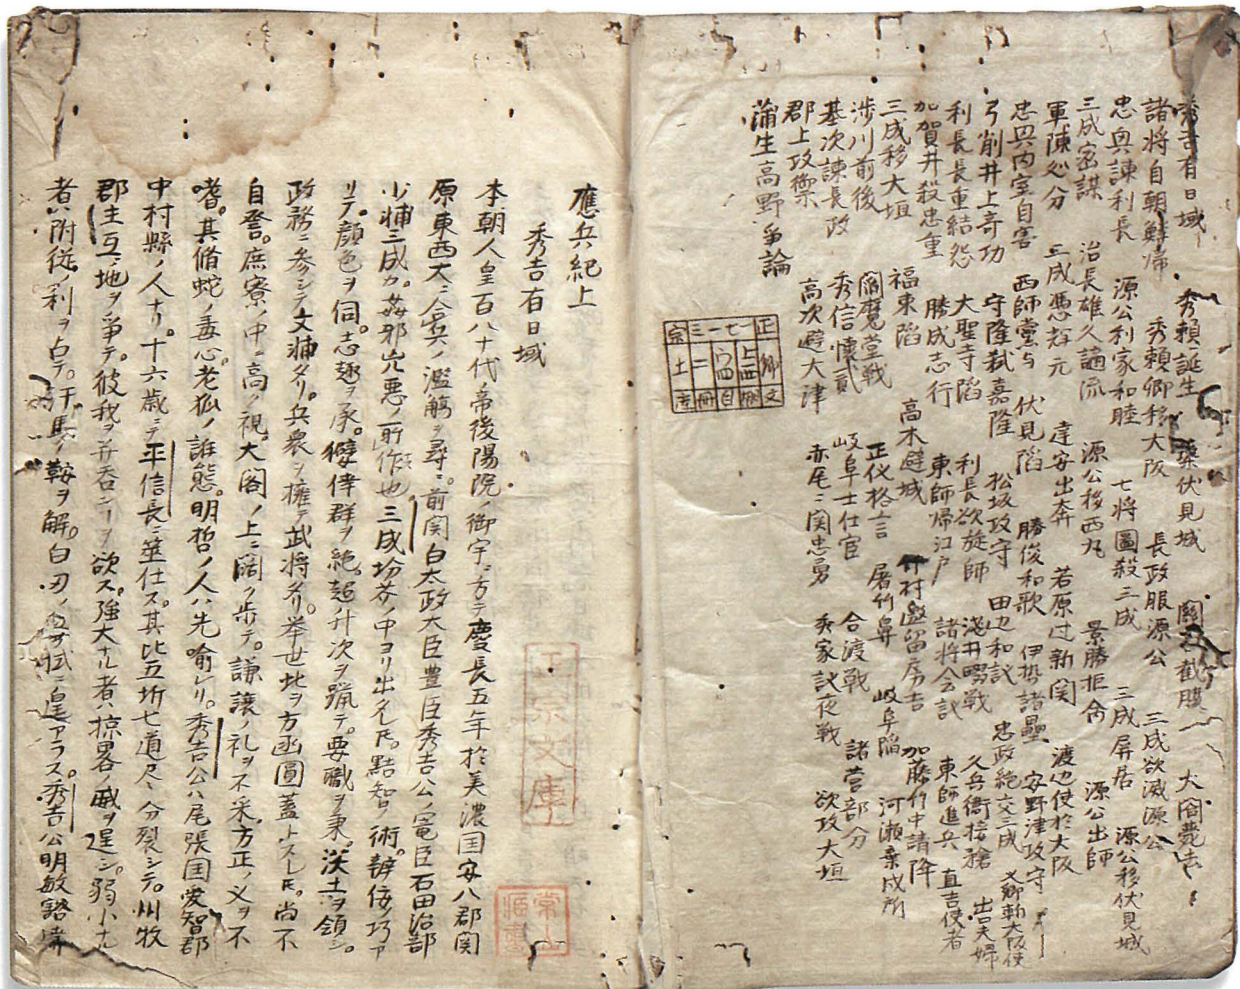 秀吉有日域 秀頼誕生 築伏見城 大閤薨去
諸将自朝鮮帰 秀頼卿移大阪 長政服源公 三成欲滅源公
忠興諫利長 源公利家和睦 七将圖殺三成 三成屏居 源公移伏見城
三成密謀 治長雄久謫流 源公移西丸 景勝拒命 源公出師
軍陳処分 三成憑輝元 達安出奔 若原过新関 渡辺使於大阪
忠興内室自害 西師党与 伏見陥 勝俊和歌 伊勢諸壘 安野津攻守
弓削井上奇功 守隆弑嘉隆 松坂攻守 田辺和議 忠政絶交三成
利長長重結怨 大聖寺陥 利長欲旋師 淺井畷戦 久兵衛接槍 山呂夫婦
加賀井殺忠重 勝成志行 東師帰江戸 諸将会議 東師進兵 直吉使者
三成移大垣 福東陥 高木避城 村邀留房吉 加藤竹中請降
渉川前後 閻魔堂戦 正似格言 屠竹鼻 岐阜陥 河瀬棄成所
基次諫長政 秀信懐貳 岐阜士仕官 合渡戦 諸営部分
郡上攻禦 高次避大津 赤尾二関忠勇 秀家議夜戦 欲攻大垣
蒲生高野争論
應兵紀上
秀吉有日域
本朝人皇百八十代帝後陽院ノ御宇ニ方テ慶長五年於美濃国安八郡関
原東西大ニ合兵ノ濫觴ヲ尋ニ前関白太政大臣豊臣秀吉公ノ寵臣石田治部
少輔三成カ姦邪兇悪ノ所作也三成坋芥ノ中ヨリ出タレ𪜈點智ノ術辯佞ノ巧ア
リテ顔色ヲ伺志趣ヲ承嬖倖群ヲ絶超升次ヲ躐テ要職ヲ秉茨土ヲ領シ
政務ニ参シテ文輔タリ兵衆ヲ擁テ武将タリ挙世此ヲ方函圓蓋トスレ𪜈尚不
自誉庶寮ノ中ニ高ク視大閤ノ上ニ闊ク歩テ謙譲ノ礼ヲ不采方正ノ義ヲ不
嗜其脩蛇ノ毒心老狐ノ誰態明哲ノ人ハ先喻レリ秀吉公ハ尾張国愛智郡
中村縣ノ人ナリ十六歳ニテ平信長ニ筮仕ス其比五圻七道尽ク分裂シテ州牧
郡主互ニ地ヲ争テ彼我ヲ并呑ンヿヲ欲ス強大ナル者ハ掠畧ノ威ヲ逞シ弱小ナル
者ハ附従ノ利ヲ占テ汗馬ノ鞍ヲ解白刃ノ血ヲ拭ニ遑アラス秀吉公明敏豁達
正宗文庫